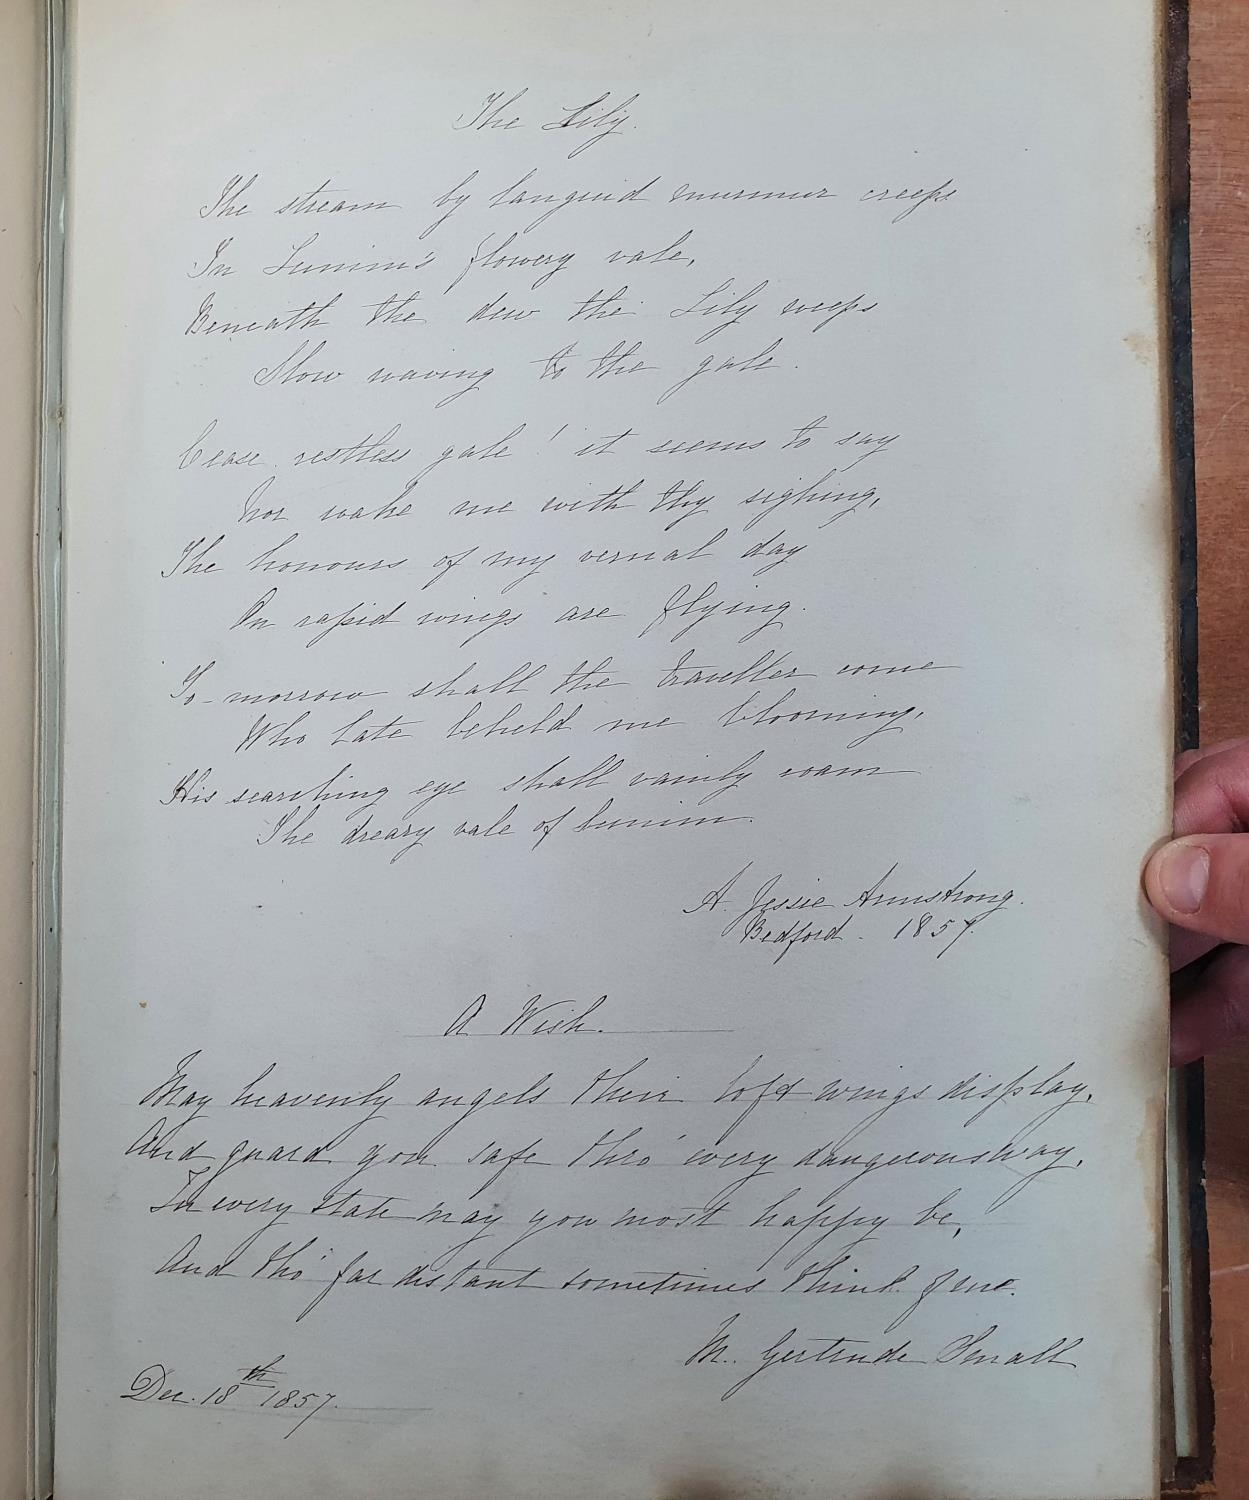 The Lily.
The stream by languid murmur creeps
In Lumin's flowery vale,
Beneath the dew the Lily weeps
Slow waving to the gale.
Cease restless gale! it seems to say
Nor wake me with thy sighing,
The honours of my vernal day
On rapid wings are flying.
To-morrow shall the traveller come
Who late beheld me blooming,
His searching eye shall vainly roam
The dreary vale of Lumin.
A. Jessie Armstrong.
Bedford. 1857.
A Wish.
May heavenly angels their soft wings display,
And guard you safe thro' every dangerous way,
In every state may you most happy be,
And tho' far distant sometimes think of me.
M. Gertrude Small
Dec. 18th 1857.